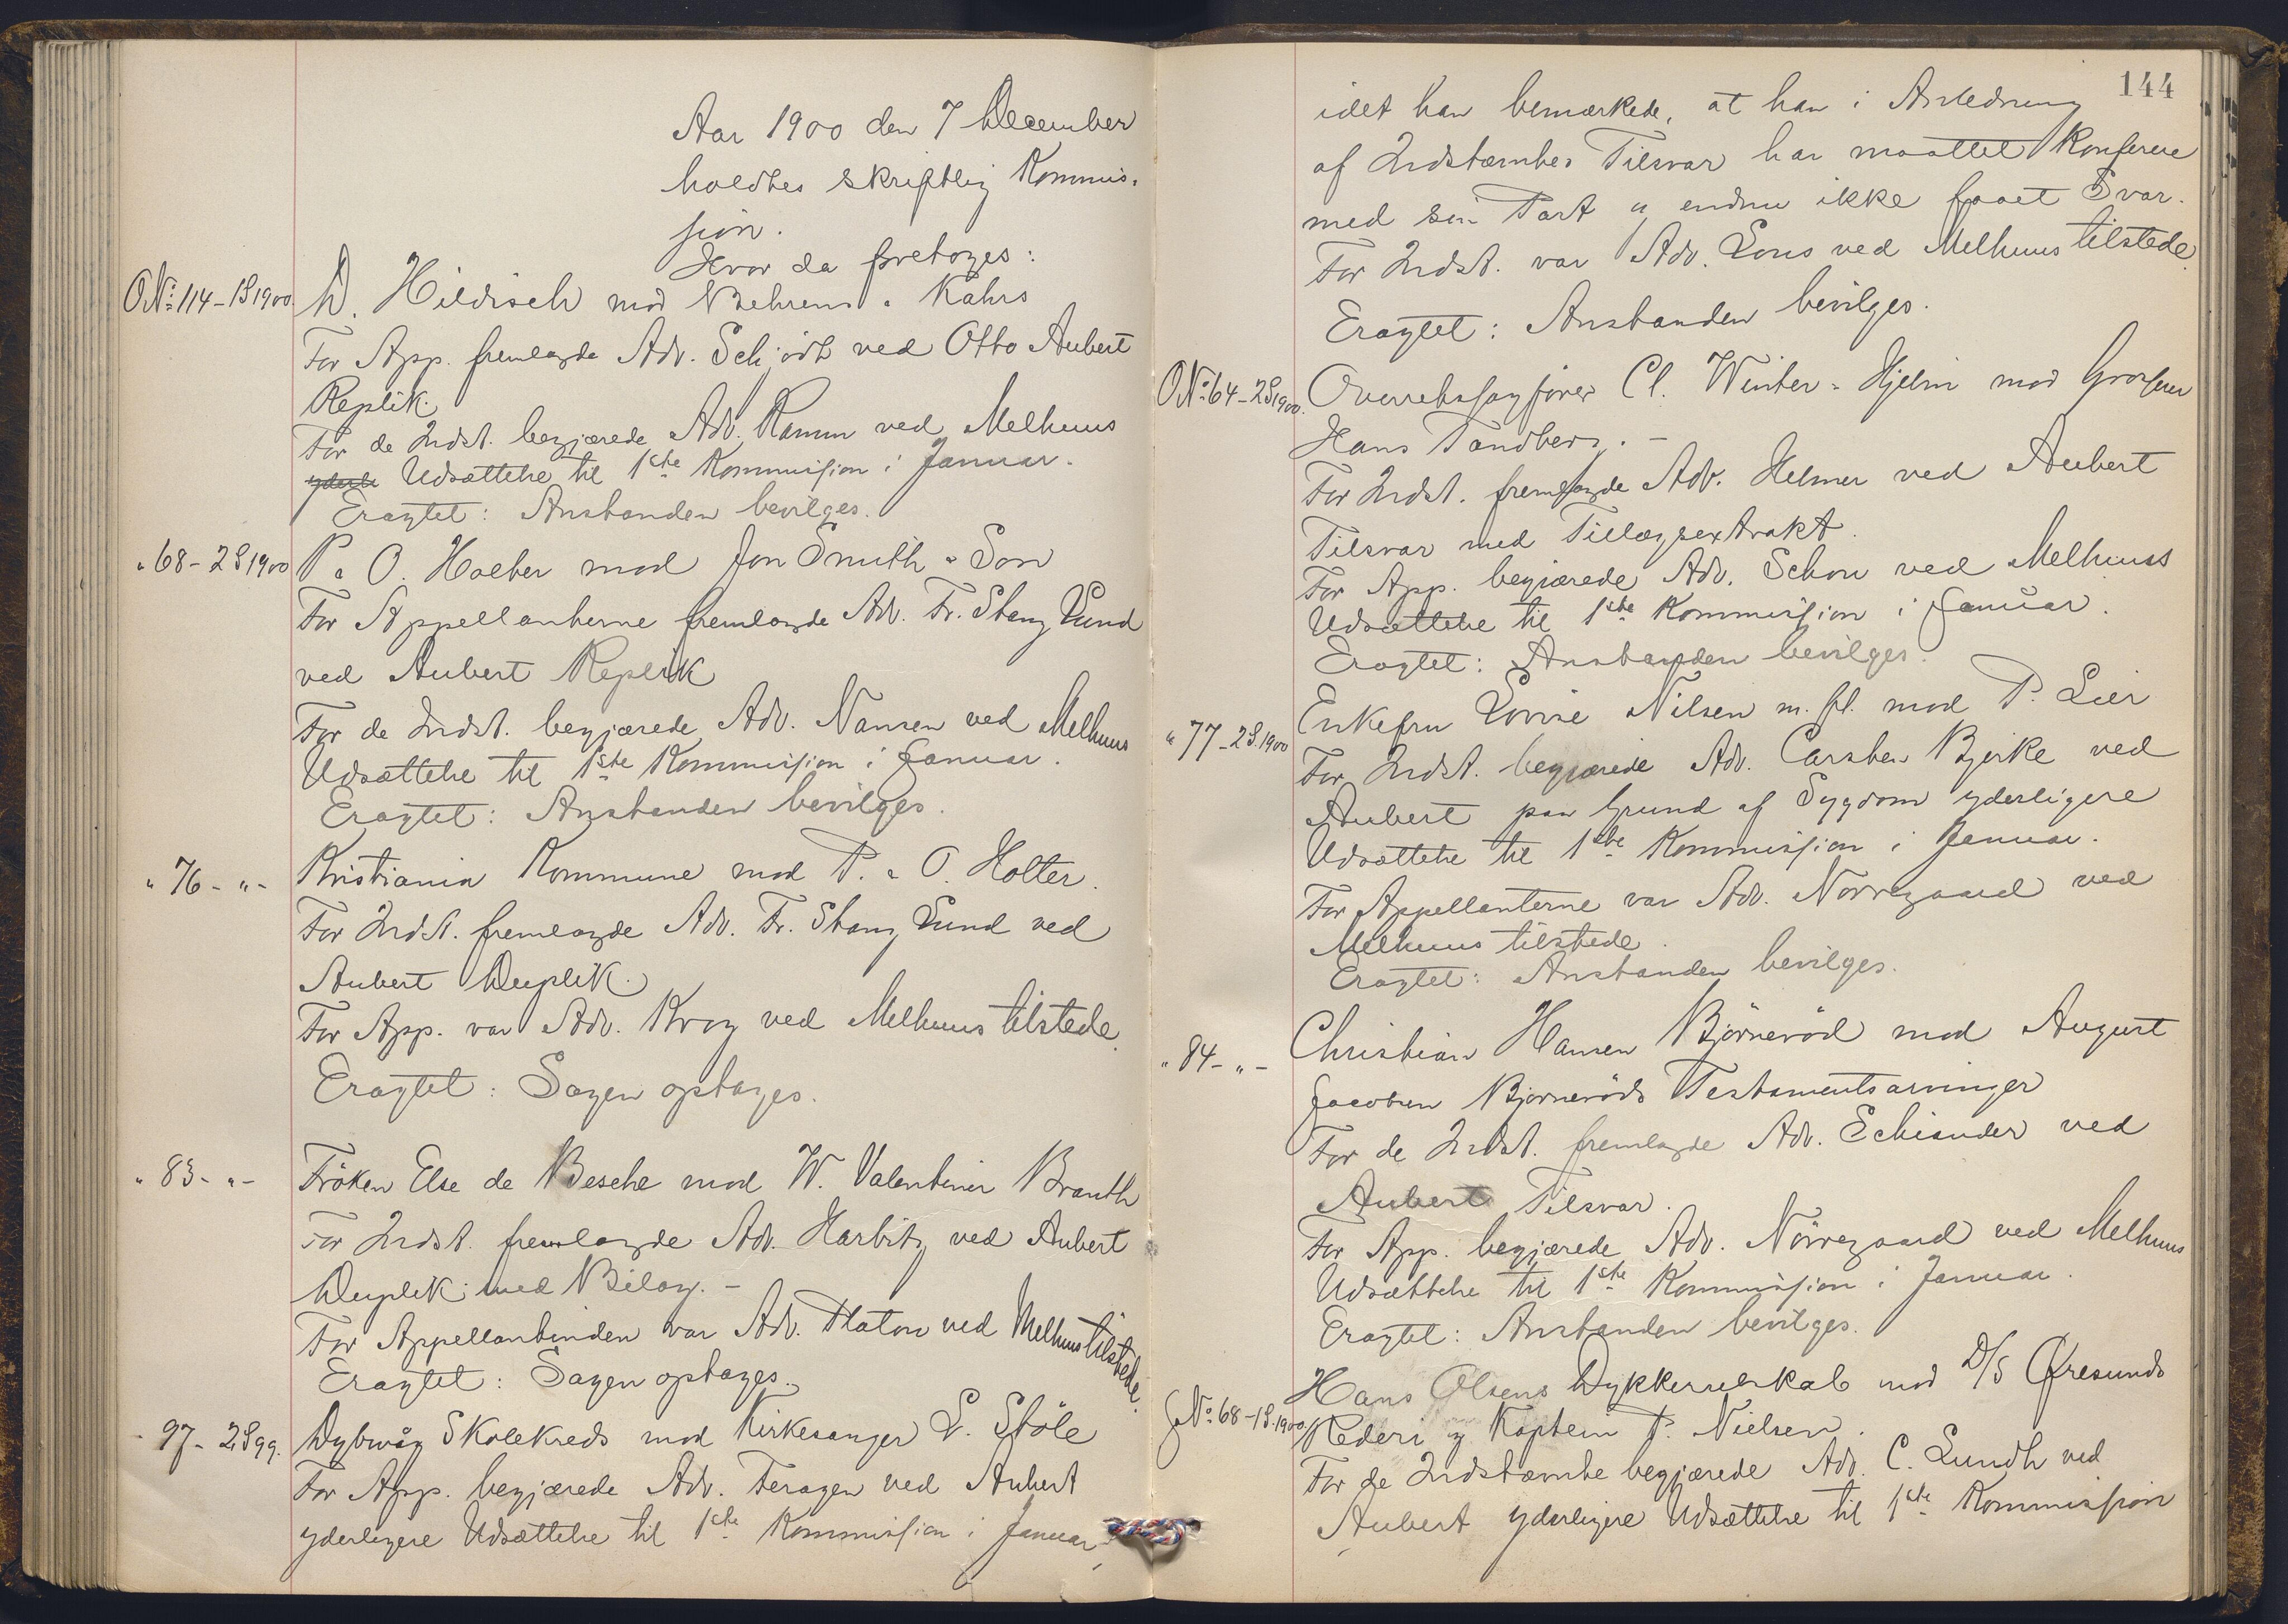 Aar 1900 den 7 December
holdtes skriftlig Kommis-
sion.
Hvor da foretoges:
O.N: 114-1S1900. D. Hildisch mod Behrens & Kahrs
For App. fremlagde Adv. Schjødt ved Otto Aubert
Replik.
For de Indst. begjærede Adv. Ramm ved Melhuus
yderli Udsættelse til 1ste Kommission i Januar.
Eragtet: Anstanden bevilges.
" 68-2S1900 P. & O. Holter mod Jon Smith & Son
For Appellanterne fremlagde Adv. Fr. Stang Lund
ved Aubert Replik
For de Indst. begjærede Adv. Nansen ved Melhuus
Udsættelse til 1ste Kommission i Januar.
Eragtet: Anstanden bevilges.
" 76-"- Kristiania Kommune mod P. & O. Holter.
For Indst. fremlagde Adv. Fr. Stang Lund ved
Aubert Duplik.
For App. var Adv. Krog ved Melhuus tilstede.
Eragtet: Sagen optages.
" 83-"- Frøken Else de Besche mod W. Valentiner Branth
For Indst. fremlagde Adv. Harbitz ved Aubert
Duplik med Bilag. -
For Appellantinden var Adv. Platou ved Melhuus tilstede.
Eragtet: Sagen optages.
" 97-2S99. Dybvåg Skolekreds mod Kirkesanger L. Støle
For App. begjærede Adv. Feragen ved Aubert
yderligere Udsættelse til 1ste Kommission i Januar,
144
idet han bemærkede, at han i Anledning
af Indstæmtes Tilsvar har maattet konferere
med sin Part og endnu ikke faaet Svar.
For Indst. var Adv. Lous ved Melhuus tilstede.
Eragtet: Anstanden bevilges.
O.N: 64-2S1900. Overretssagfører Cl. Winter-Hjelm mod Grosserer
Hans Tandberg. -
For Indst. fremlagde Adv. Helmer ved Aubert
Tilsvar med Tillægsextrakt.
For App. begjærede Adv. Schou ved Melhuus
Udsættelse til 1ste Kommission i Januar.
Eragtet: Anstanden bevilges.
" 77-2S.1900 Enkefru Lovise Nilsen m. fl. mod P. Lier
For Indst. begjærede Adv. Carsten Bjerke ved
Aubert paa Grund af Sygdom yderligere
Udsættelse til 1ste Kommission i Januar.
For Appellanterne var Adv. Nørregaard ved
Melhuus tilstede.
Eragtet: Anstanden bevilges.
" 84-"- Christian Hansen Bjørnerød mod August
Jacobsen Bjørnerøds Testamentsarvinger
For de Indst. fremlagde Adv. Schiander ved
Aubert Tilsvar.
For App. begjærede Adv. Nørregaard ved Melhuus
Udsættelse til 1ste Kommission i Januar.
Eragtet: Anstanden bevilges.
J.N: 68-1S.1900. Hans Olsens Dykkerselskab mod D/S Øresunds
Rederi og Kaptein P. Nielsen.
For de Indstæmte begjærede Adv. C. Lundh ved
Aubert yderligere Udsættelse til 1ste Kommission